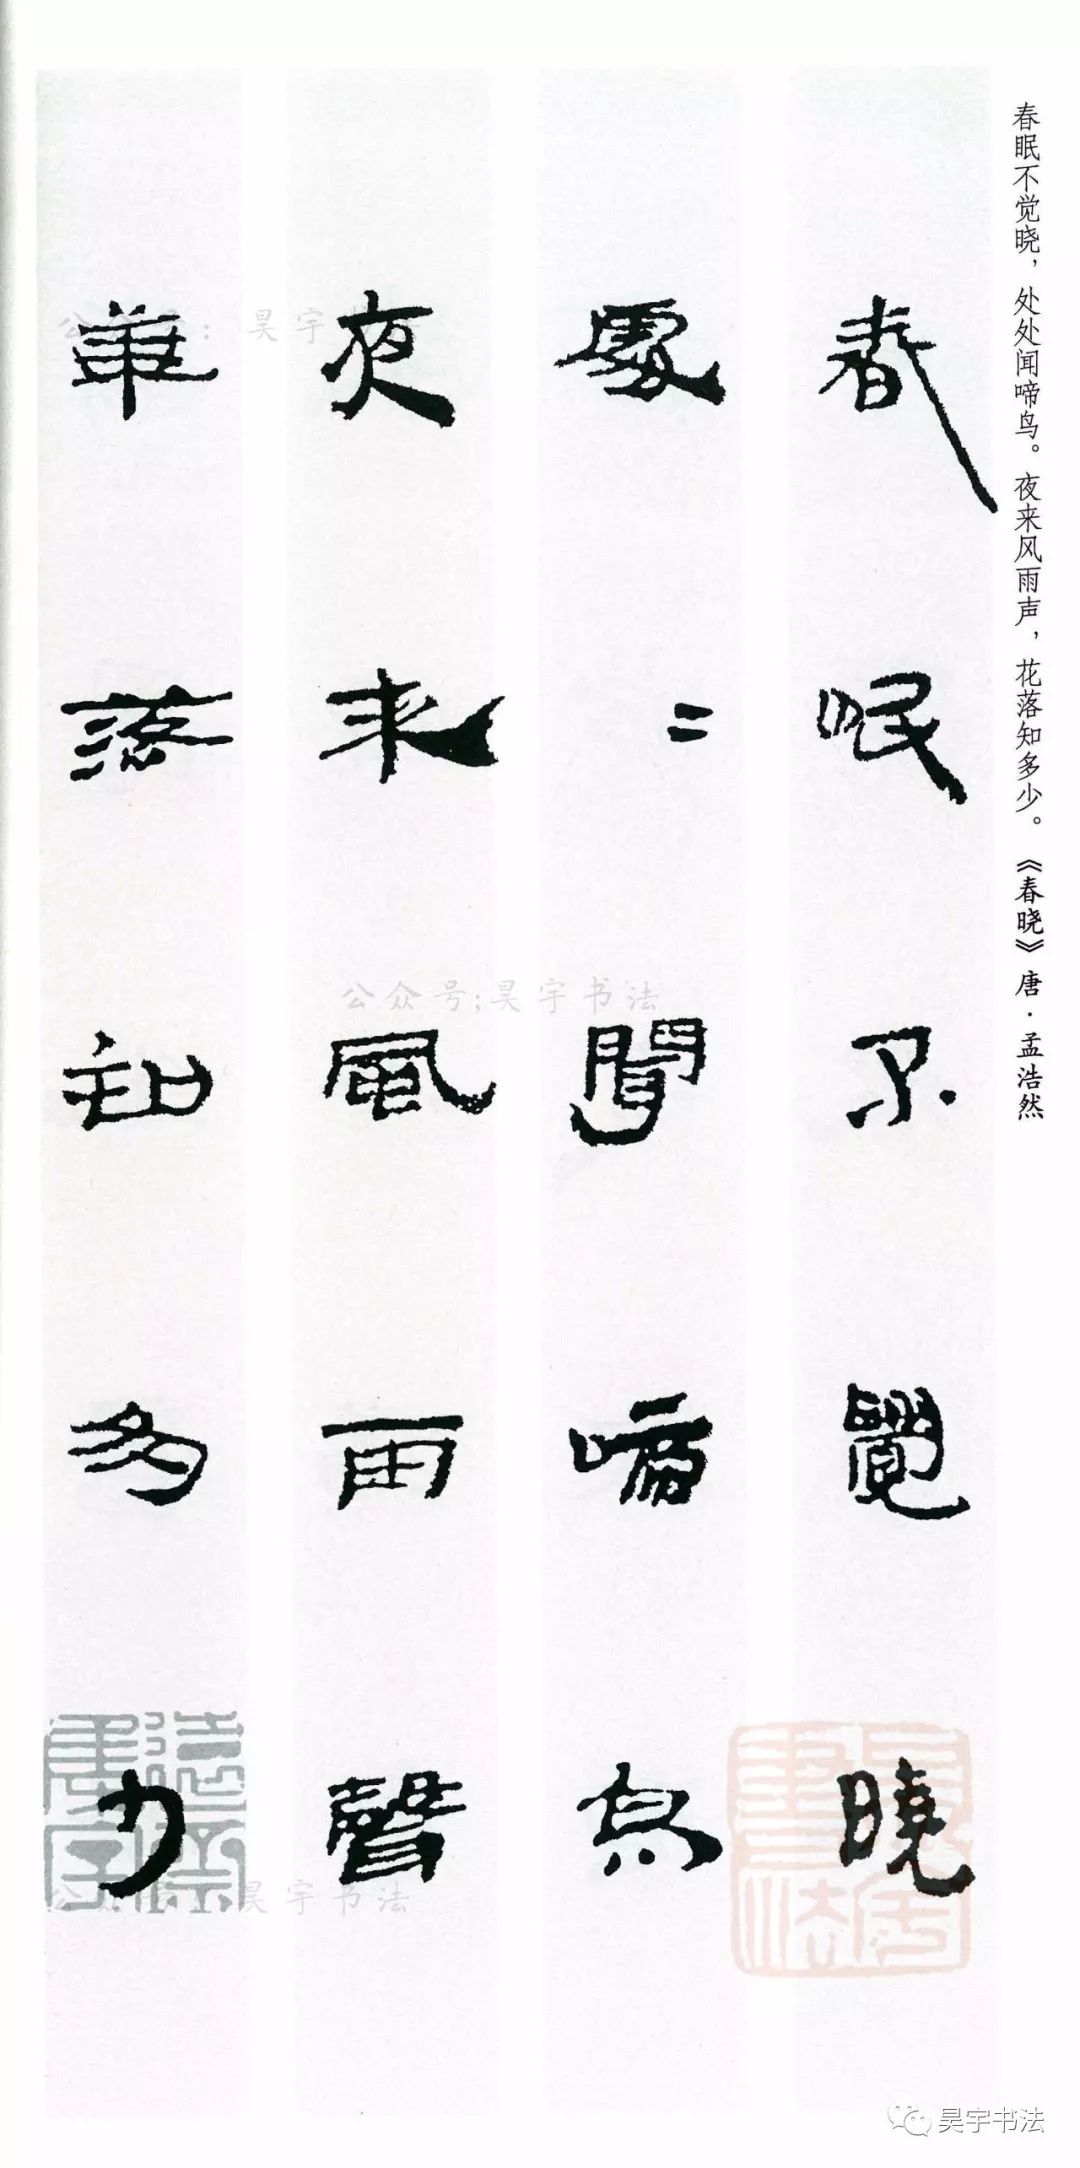 春眠不觉晓，处处闻啼鸟。夜来风雨声，花落知多少。《春晓》唐·孟浩然
春眠不覺曉
處〻聞啼鳥
夜来風雨聲
華落知多少
公众号:昊宇书
公众号:昊宇书法
公众号:昊宇书法
昊宇书法